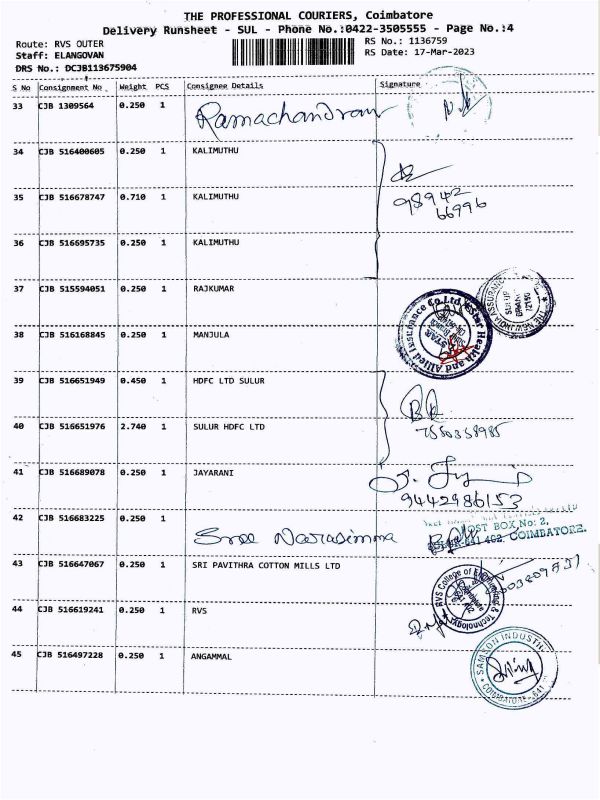 THE PROFESSIONAL COURIERS, Coimbatore
Delivery Runsheet - SUL - Phone No.:0422-3505555 - Page No.:4
Route: RVS OUTER RS No.: 1136759
Staff: ELANGOVAN RS Date: 17-Mar-2023
DRS No.: DCJB113675904
S No Consignment No Weight PCS Consignee Details Signature
33 CJB 1309564 0.250 1 Ramachandran
34 CJB 516400605 0.250 1 KALIMUTHU
35 CJB 516678747 0.710 1 KALIMUTHU
98942
66996
36 CJB 516695735 0.250 1 KALIMUTHU
37 CJB 515594051 0.250 1 RAJKUMAR
THE NEW INDIA ASSURANCE
SULUR
BRANCH
38 CJB 516168845 0.250 1 MANJULA
Star Health and Allied Insurance Co.Ltd
39 CJB 516651949 0.450 1 HDFC LTD SULUR
40 CJB 516651976 2.740 1 SULUR HDFC LTD
7550358985
41 CJB 516689078 0.250 1 JAYARANI
9442986153
42 CJB 516683225 0.250 1 Sree Narasimma
POST BOX No: 2,
COIMBATORE.
43 CJB 516647067 0.250 1 SRI PAVITHRA COTTON MILLS LTD
44 CJB 516619241 0.250 1 RVS
RVS College of Engineering & Technology
45 CJB 516497228 0.250 1 ANGAMMAL
SAMSON INDUSTRI
COIMBATORE-641